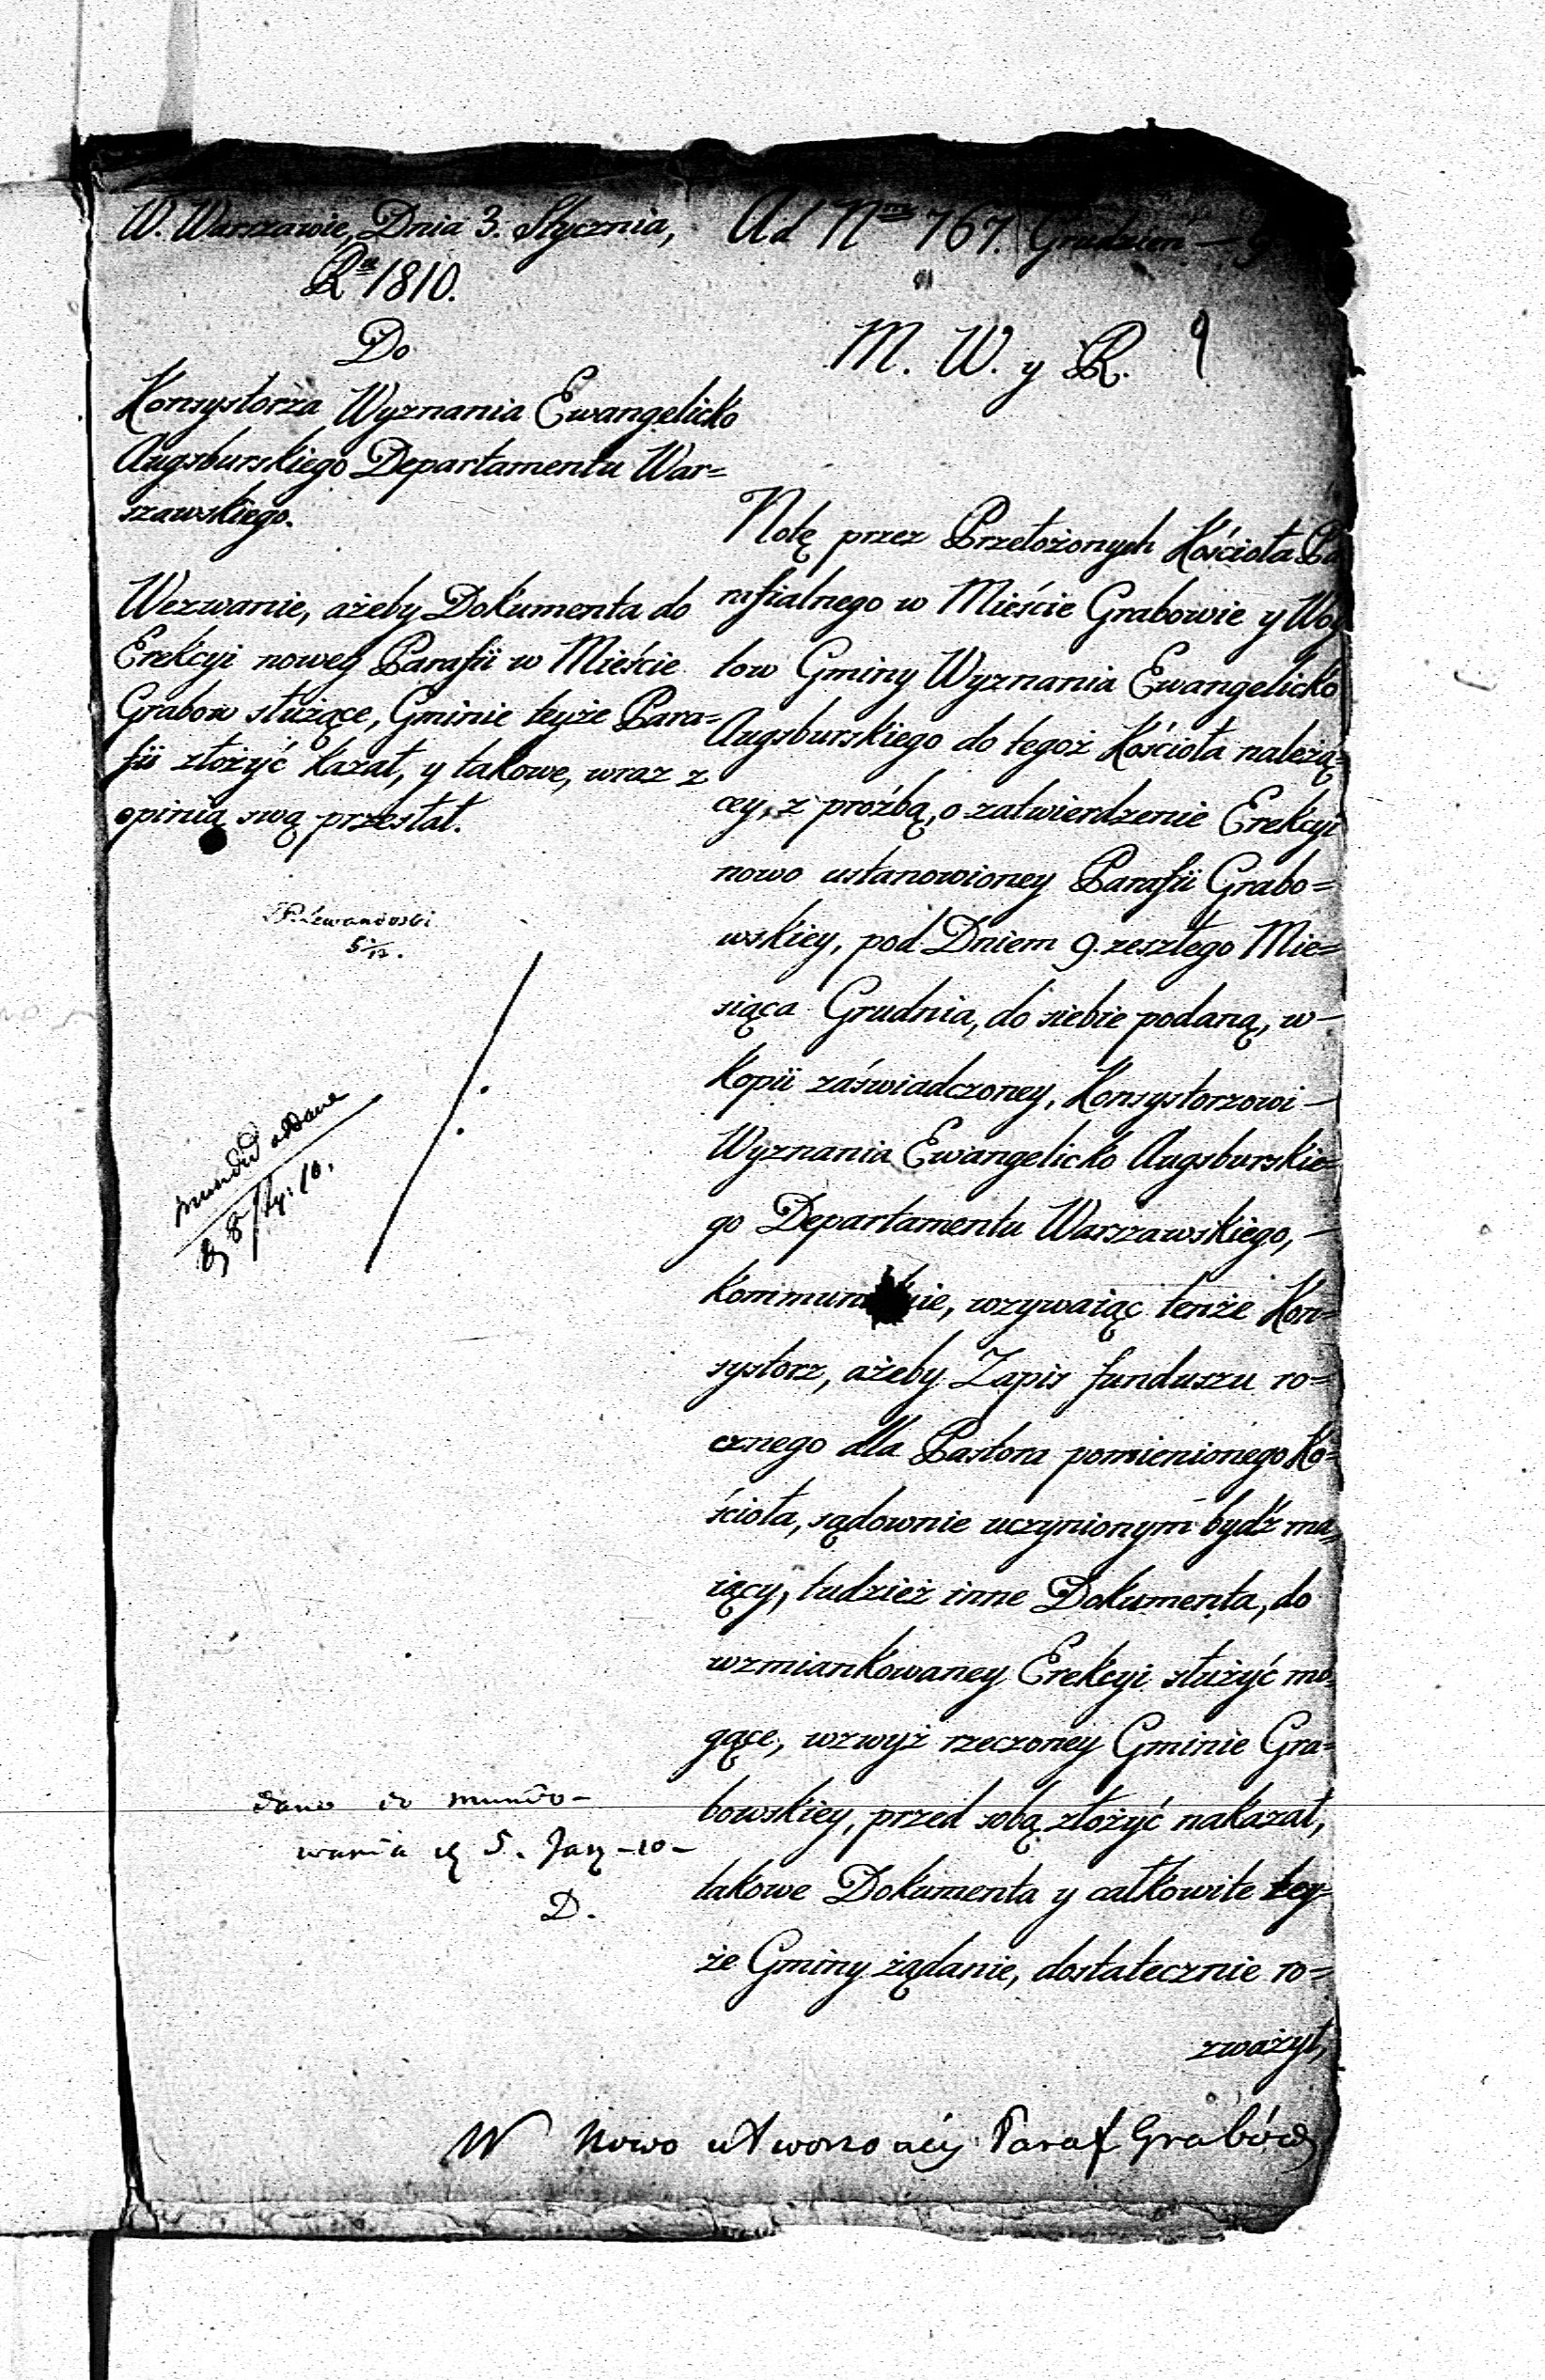 W. Warszawie, Dnia 3. Stycznia,
Ra 1810.
Do
Konsystorza Wyznania Ewangelicko
Augsburskiego Departamentu War=
szawskiego.
Wezwanie, ażeby Dokumenta do
Erekcyi nowey Parafii w Mieście
Grabow służące, Gminie teyże Para=
fii złożyć kazał, y takowe, wraz z
opinią swą przesłał.
Lewandoski
mundū oddane
8
dano do mundo-
wania d 5. Jan -10-
D.
Ad Nrm 767. Grudzien — 9
M. W. y R. 9
Notę przez Przełożonych Kościoła Pa
rafialnego w Mieście Grabowie y Woy
tow Gminy Wyznania Ewangelicko
Augsburskiego do tegoż Kościoła należą=
cey, z proźbą, o zatwierdzenie Erekcyi
nowo ustanowioney Parafii Grabo=
wskiey, pod Dniem 9. zeszłego Mie=
siąca Grudnia, do siebie podaną, w—
kopii zaświadczoney, Konsystorzowi—
Wyznania Ewangelicko Augsburskie=
go Departamentu Warszawskiego,—
kommunikuie, wzywaiąc tenże Kon=
systorz, ażeby Zapis funduszu ro=
cznego dla Pastora pomienionego Ko=
ścioła, sądownie uczynionym bydź ma„
iący, tudzież inne Dokumenta, do
wzmiankowaney Erekcyi służyć mo=
gące, wzwyż rzeczoney Gminie Gra=
bowskiey, przed sobą złożyć nakazał,
takowe Dokumenta y całkowite tey=
że Gminy żądanie, dostatecznie ro=
zważył,
W nowo utworzonéy Paraf Grabów